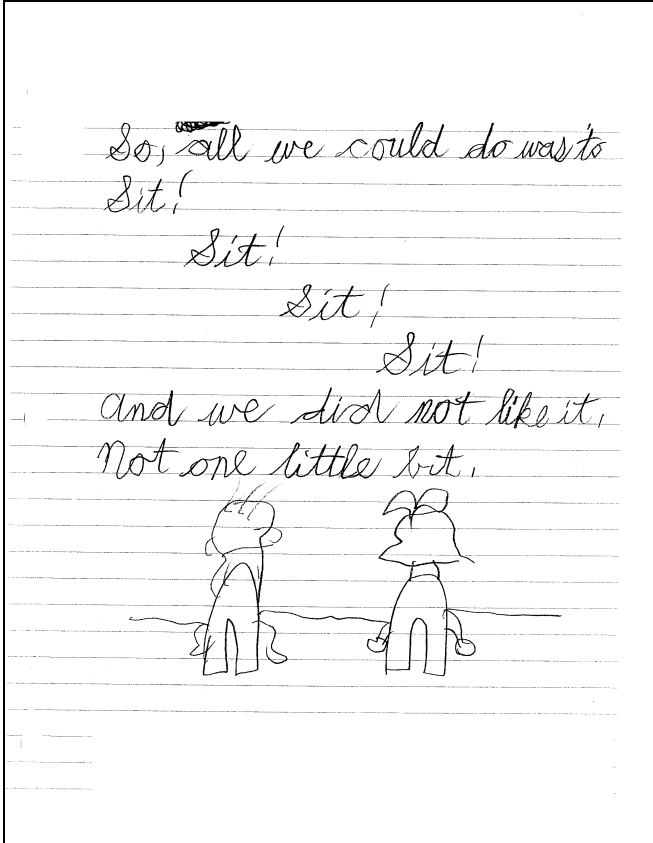 So, all we could do was to
Sit!
Sit!
Sit!
Sit!
and we did not like it.
Not one little bit.